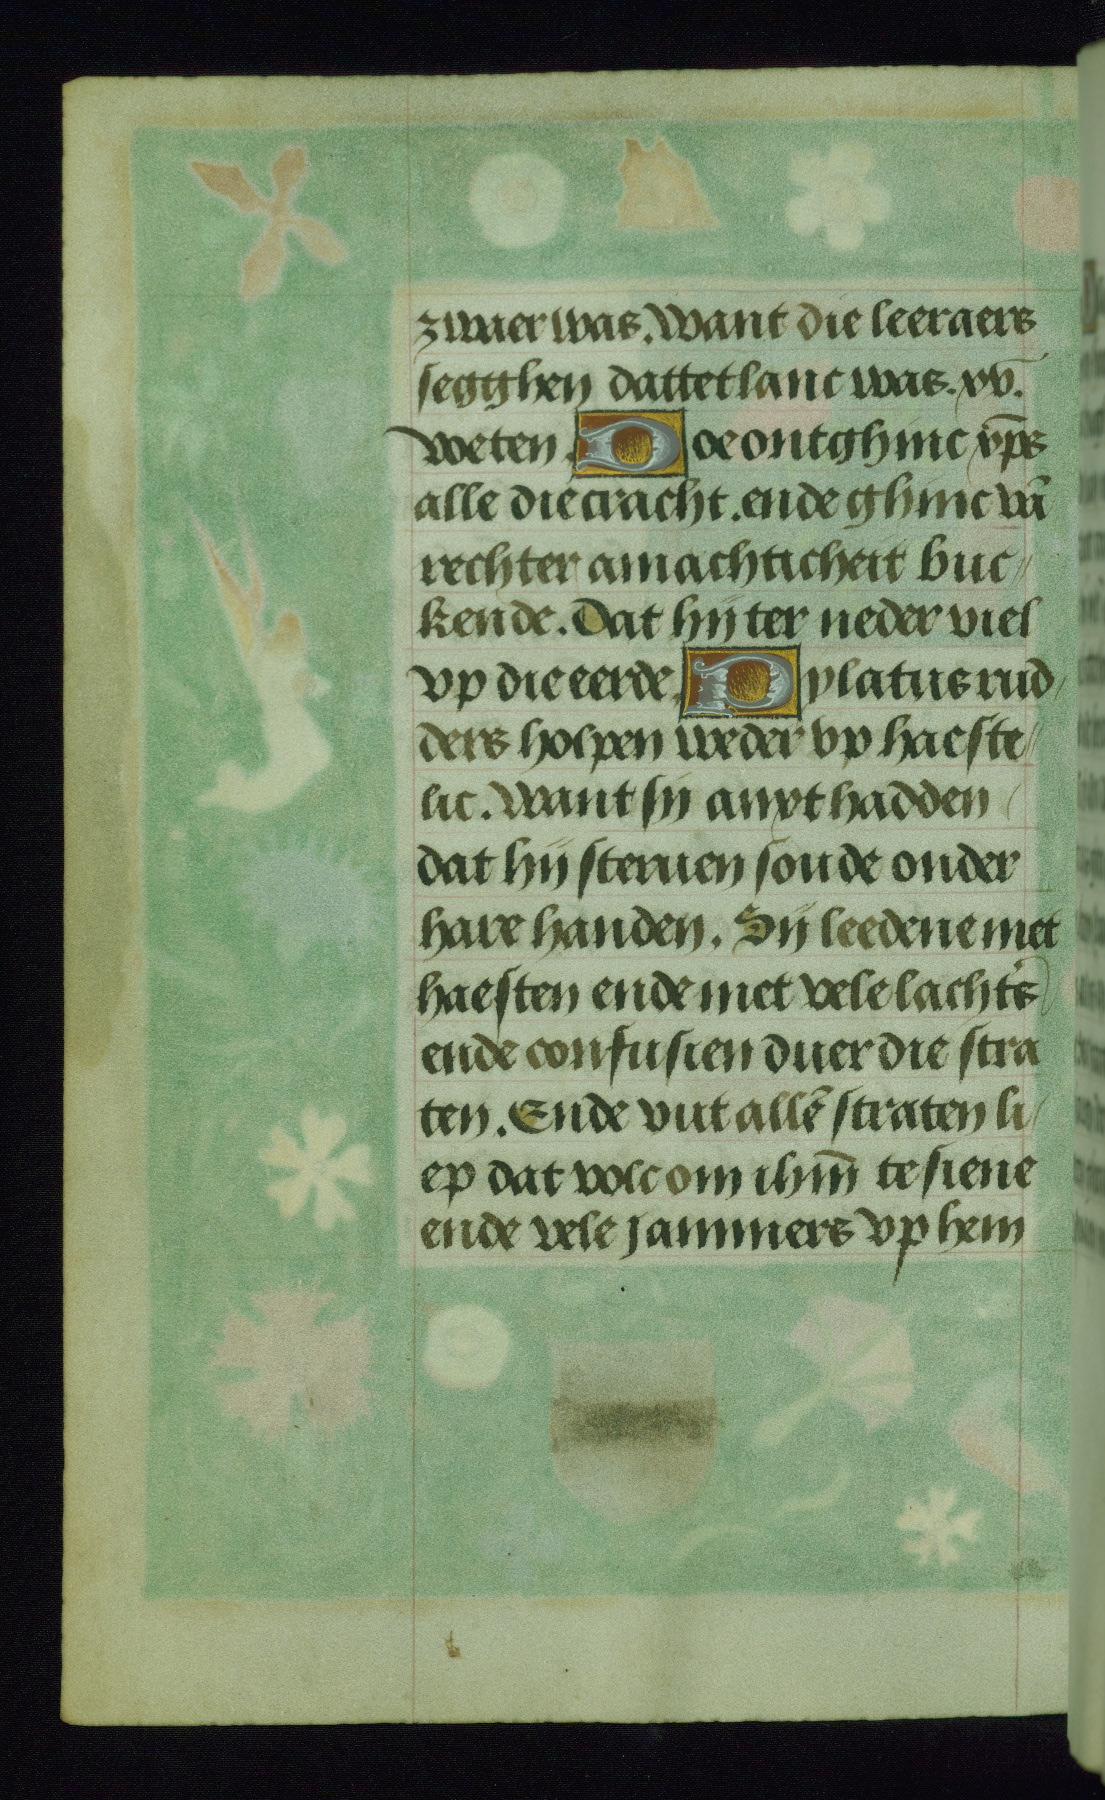 zwaer was. Want die leeraers
segghen dattet lanc was. xv.
weten. Doe ontghinc xp̄s
alle die cracht. ende ghinc vā
rechter amachticheit buc⸗
kende. Dat hij ter neder viel
vp die eerde. Pylatus rud⸗
ders holpen weder vp haeste⸗
lic. Want sij anxt hadden
dat hij steruen soude onder
hare handen. Sij leedene met
haesten ende met vele lacht's
ende confusien duer die stra
ten. Ende vut allē straten li⸗
ep dat volc om ihm̄ te siene
ende vele jammers vp hem